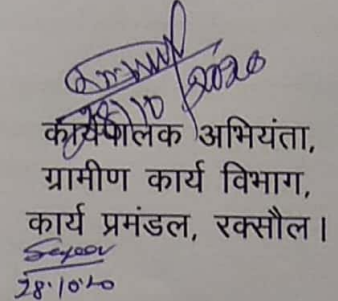 28/10/2020
कार्यपालक अभियंता,
ग्रामीण कार्य विभाग,
कार्य प्रमंडल, रक्सौल।
28.10.20